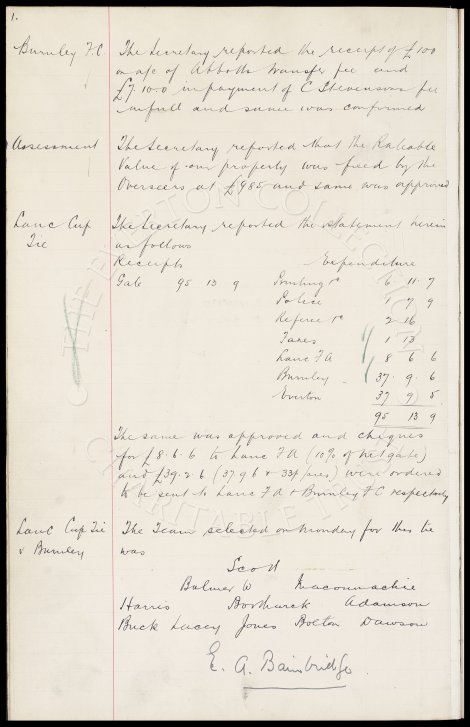 1.
Burnley F.C The Secretary reported the receipt of £100
on a/c of Abbotts transfer fee and
£7.10.0 in payment of C Stevensons fee
in full and same was confirmed
Assessment The Secretary reported that the Rateable
Value of our property was fixed by the
Overseers at £985 and same was approved
Lanc Cup The Secretary reported the statement herein
Tie as follows
Receipts Expenditure
Gate 95 13 9 Printing &c 6 11 7
Police 1 7 9
Referee &c 2 16
Taxes 1 13
Lanc F A 8 6 6
Burnley 37 9 6
Everton 37 9 5
95 13 9
The same was approved and cheques
for £8.6.6 to Lanc F A (10% of net gate)
and £39.2.6 (37 9 6 + 33/- ) were ordered
to be sent to Lanc F A & Burnley F C respectively
Lanc Cup Tie The Team selected on Monday for this tie
v Burnley was
Scott
Balmer W Maconnachie
Harris Borthwick Adamson
Buck Lacey Jones Bolton Dawson
E. A. Bainbridge
THE EVERTON COLLECTION
CHARITABLE TRUST